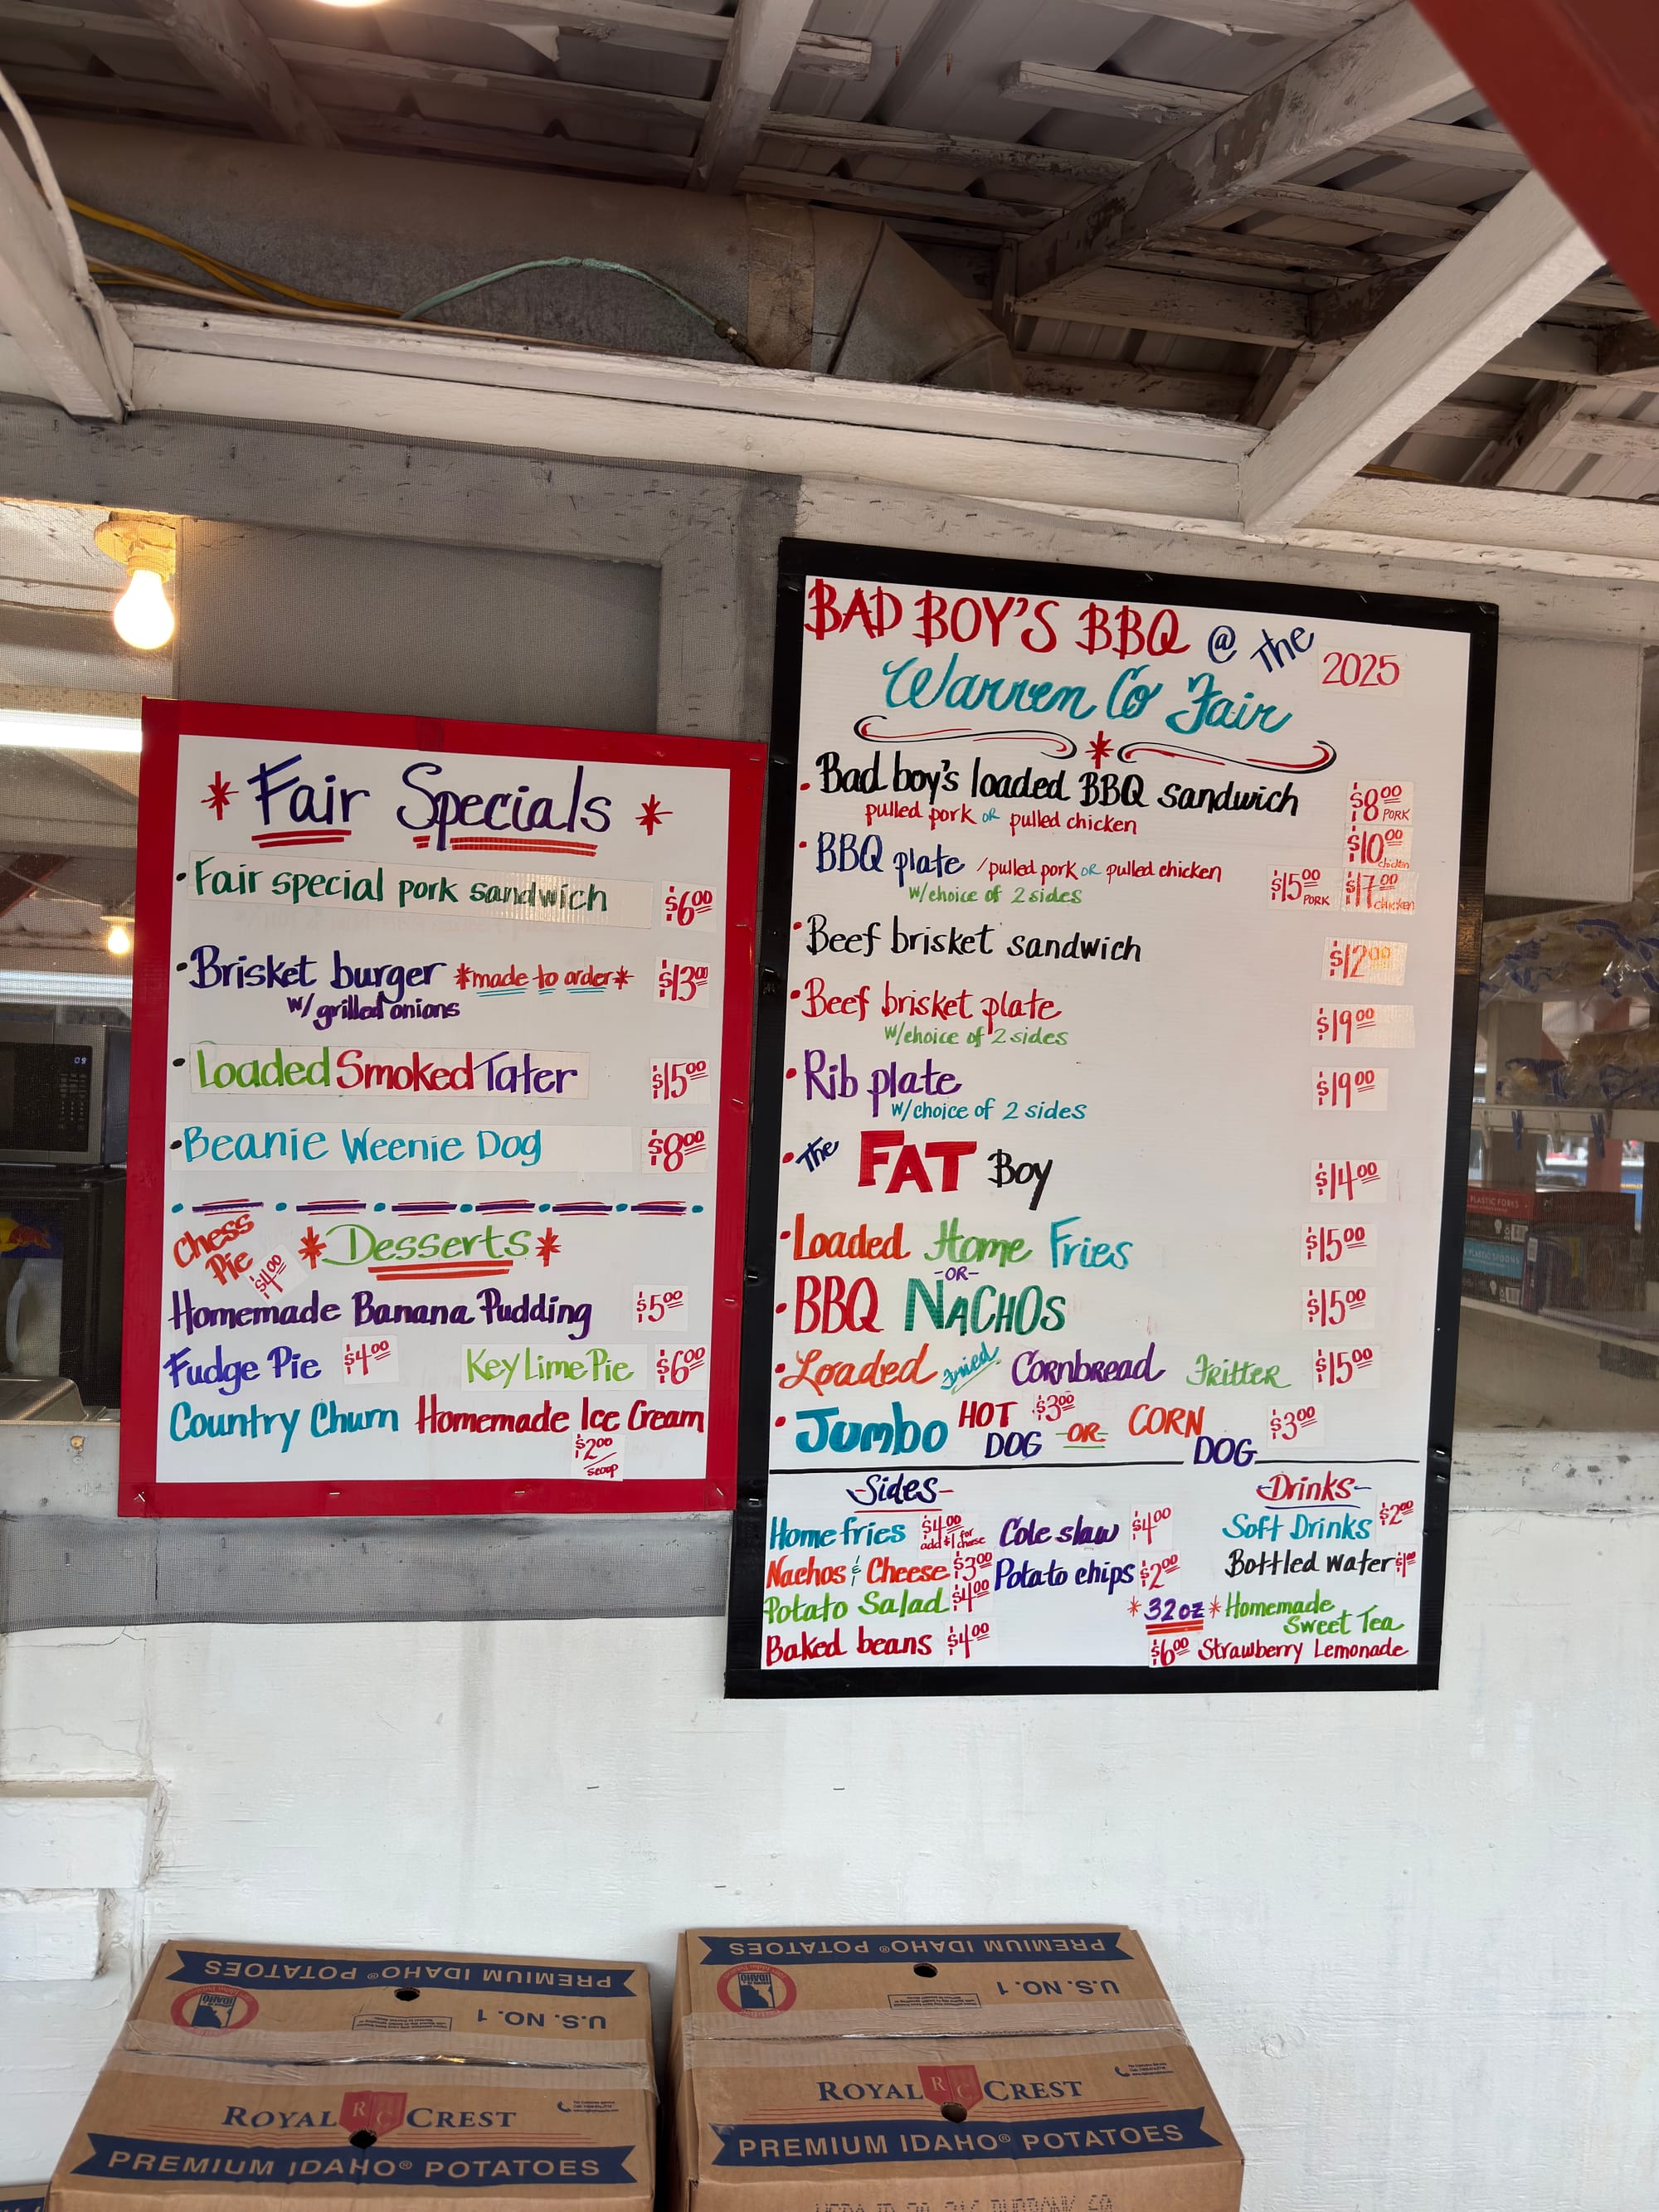 * Fair Specials *
• Fair special pork sandwich $6.00
• Brisket burger *made to order* $13.00
w/ grilled onions
• Loaded Smoked Tater $15.00
• Beanie Weenie Dog $8.00
Chess Pie $4.00
* Desserts *
Homemade Banana Pudding $5.00
Fudge Pie $4.00 Key Lime Pie $6.00
Country Churn Homemade Ice Cream
$2.00 / scoop
BAD BOY'S BBQ @ The 2025
Warren Co Fair
• Bad boy's loaded BBQ sandwich $8.00 PORK
pulled pork or pulled chicken $10.00 chicken
• BBQ plate / pulled pork or pulled chicken $15.00 PORK $17.00 chicken
w/choice of 2 sides
• Beef brisket sandwich $12.00
• Beef brisket plate $19.00
w/choice of 2 sides
• Rib plate $19.00
w/choice of 2 sides
• The FAT Boy $14.00
• Loaded Home Fries $15.00
-OR-
• BBQ NACHOS $15.00
• Loaded Fried Cornbread Fritter $15.00
• Jumbo HOT DOG $3.00 -OR- CORN DOG $3.00
-Sides-
Home fries $4.00 add $1 for cheese Cole slaw $4.00
Nachos & Cheese $3.00 Potato chips $2.00
Potato Salad $4.00
Baked beans $4.00
-Drinks-
Soft Drinks $2.00
Bottled water $1.00
*32oz* Homemade Sweet Tea
$6.00 Strawberry Lemonade
PREMIUM IDAHO® POTATOES
U.S. NO. 1
ROYAL RC CREST
PREMIUM IDAHO® POTATOES
PREMIUM IDAHO® POTATOES
U.S. NO. 1
ROYAL RC CREST
PREMIUM IDAHO® POTATOES
PLASTIC FORKS
PLASTIC SPOONS